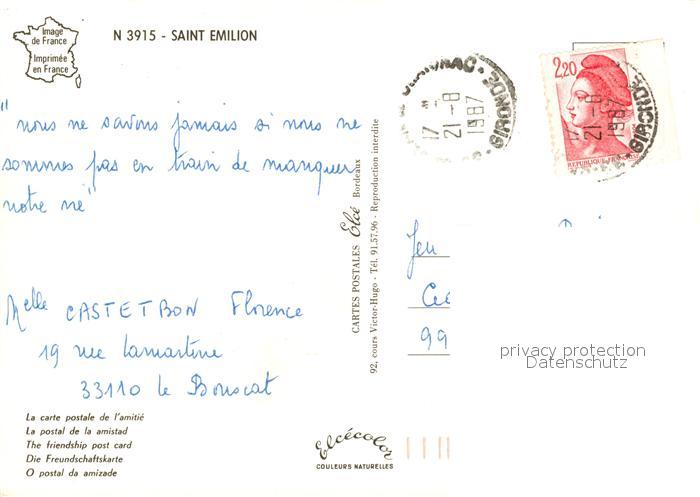 Image
de France
Imprimée
en France
N 3915 - SAINT EMILION
"nous ne savons jamais si nous ne
sommes pas en train de manquer
notre vie"
Melle CASTETBON Florence
19 rue Lamartine
33110 le Bouscat
La carte postale de l'amitié
La postal de la amistad
The friendship post card
Die Freundschaftskarte
O postal da amizade
CARTES POSTALES Elcé Bordeaux
92, cours Victor-Hugo - Tél. 91.57.96 - Reproduction interdite
Elcécolor
COULEURS NATURELLES
17 H
21-8
1987
GIRONDE
2,20
REPUBLIQUE FRANÇAISE
17
21-8
1987
GIRONDE
Jeu
99
privacy protection
Datenschutz